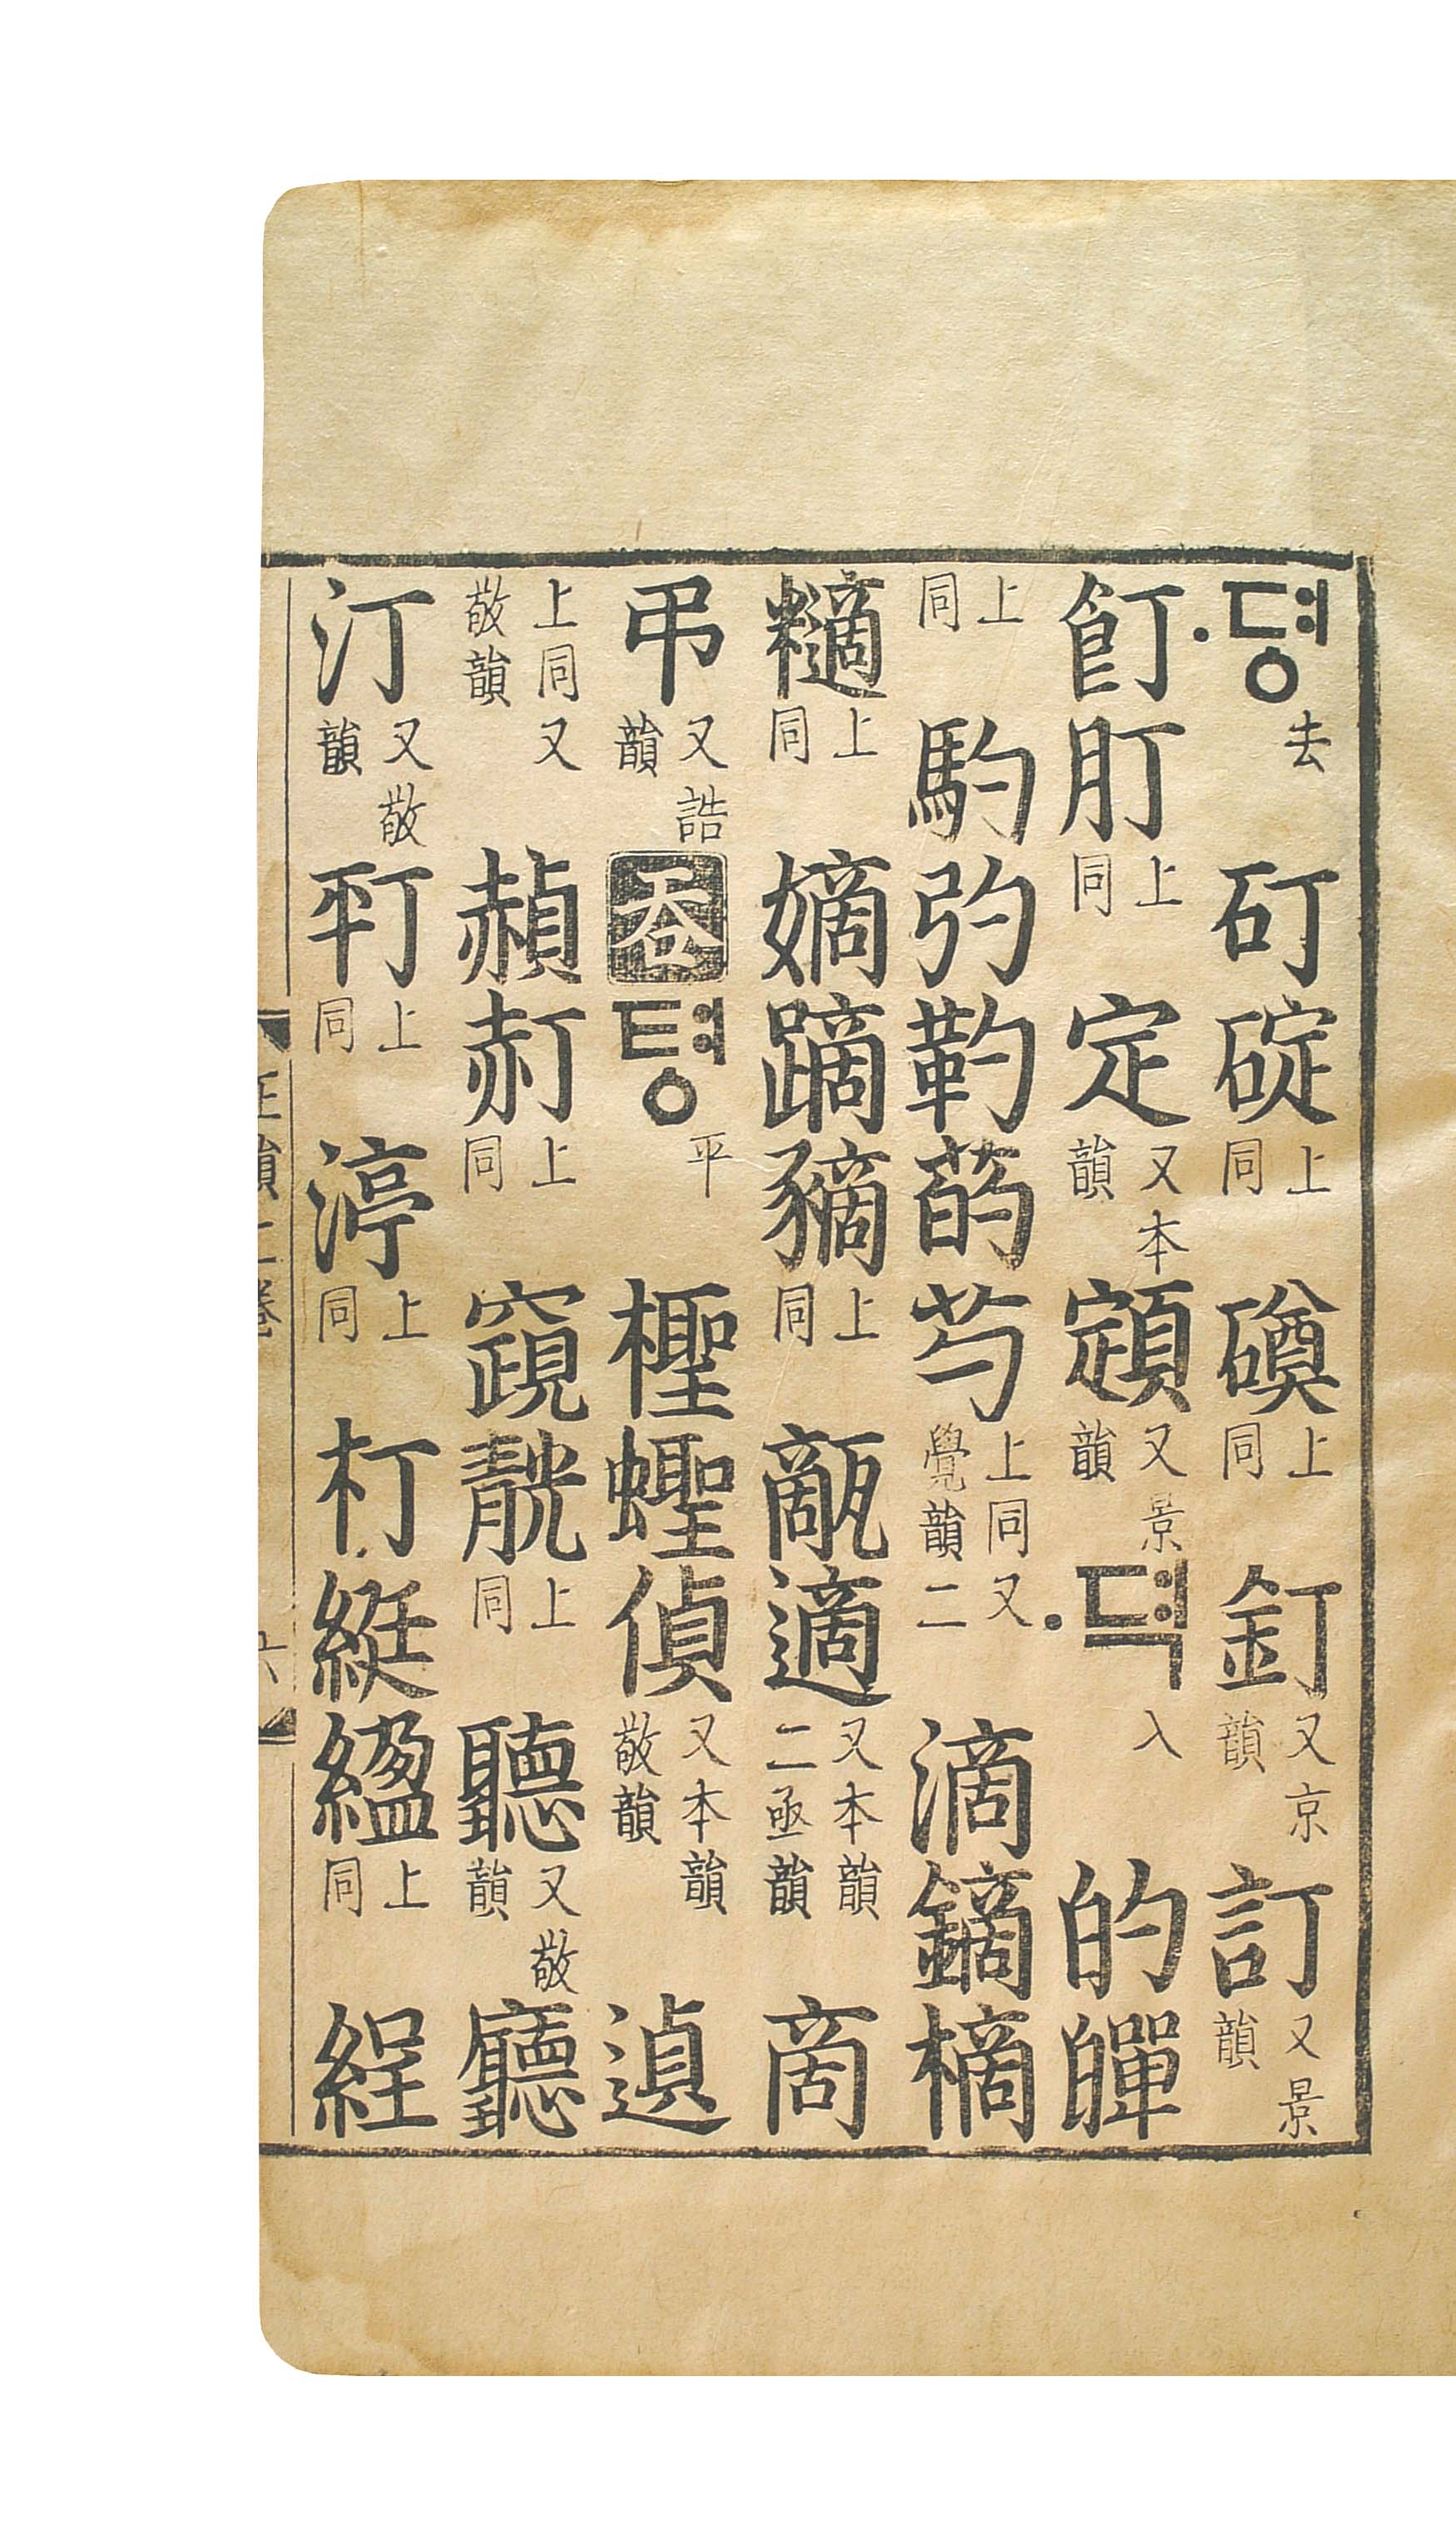 ·뎡去矴碇上同磸上同釘又京韻訂又景韻
飣上同定又本韻顁又景韻·뎍入的
上同馰靮菂芍上同又二覺韻滴鏑樀
上同嫡蹢豴上同甋適又本韻二亟韻啇
弔又誥韻呑텽平檉蟶偵又本韻敬韻遉
上同又敬韻赬上同上同聽又敬韻廳
汀又敬韻上同渟上同朾綎上同
正韻二卷 六